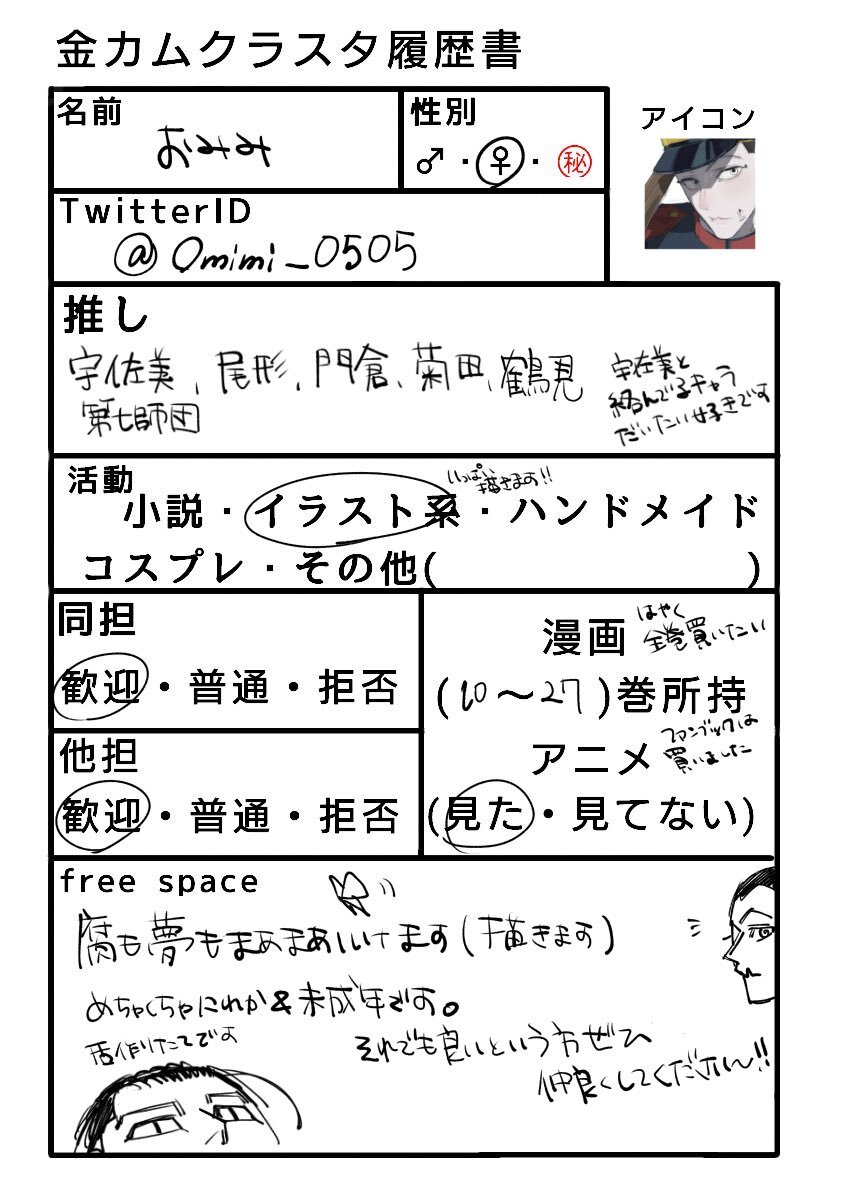 金カムクラスタ履歴書
名前
おみみ
性別
♂・♀・㊙
アイコン
TwitterID
@Omimi_0505
推し
宇佐美、尾形、門倉、菊田、鶴見
第七師団
宇佐美と
絡んでるキャラ
だいたい好きです
活動
いっぱい
描きます!!
小説・イラスト系・ハンドメイド
コスプレ・その他( )
同担
歓迎・普通・拒否
他担
歓迎・普通・拒否
漫画
はやく
全巻買いたい
(10〜27)巻所持
アニメ
ファンブックは
買いました
(見た・見てない)
free space
腐も夢もまあまあいてます(描きます)
めちゃくちゃにわか&未成年です。
舌作りたてです
それでも良いという方ぜひ
仲良くしてください〜!!